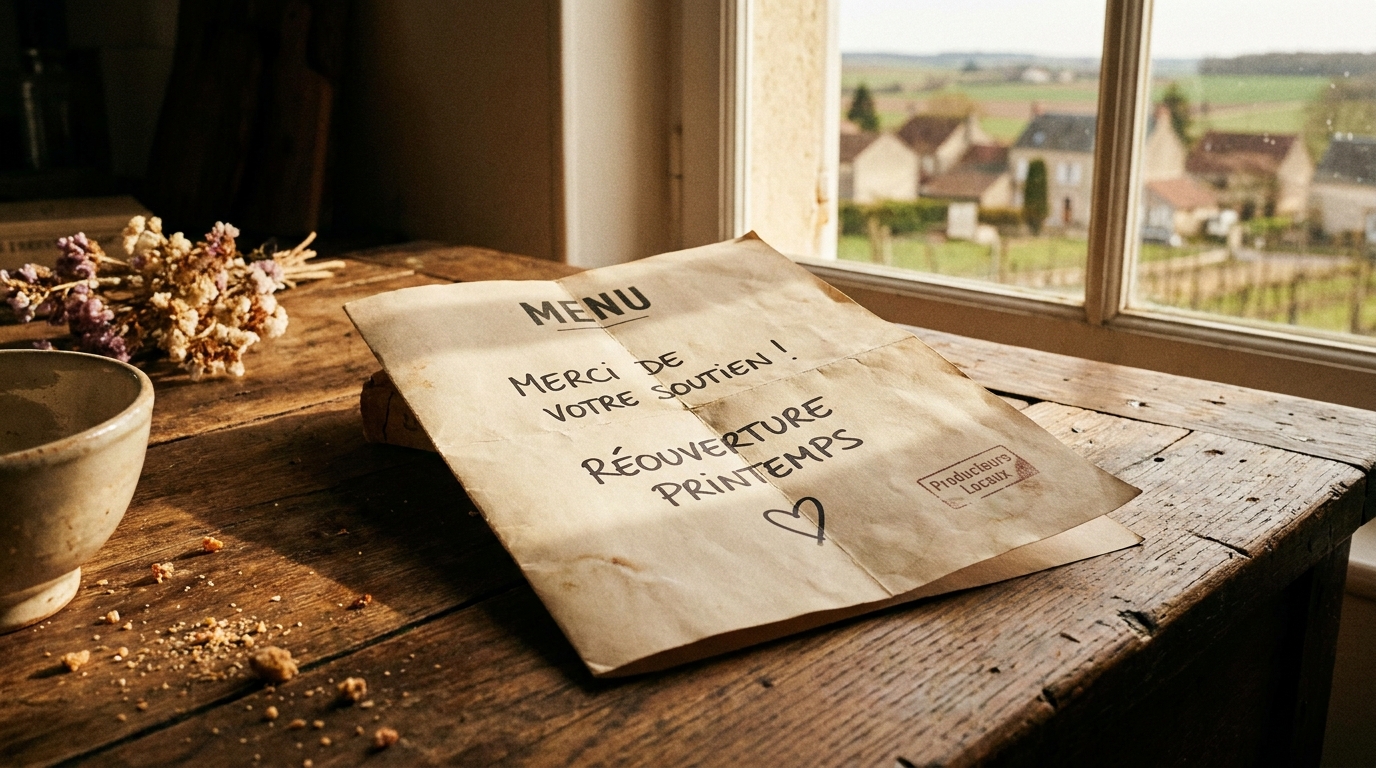 MENU
MERCI DE
VOTRE SOUTIEN !
RÉOUVERTURE
PRINTEMPS
Producteurs
Locaux